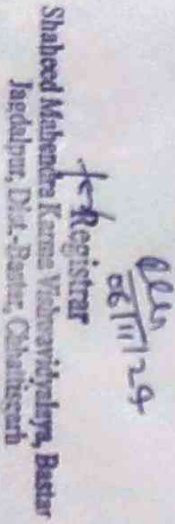 06/11/24
Registrar
Shaheed Mahendra Karma Vishwavidyalaya, Bastar
Jagdalpur, Dist.-Bastar, Chhattisgarh